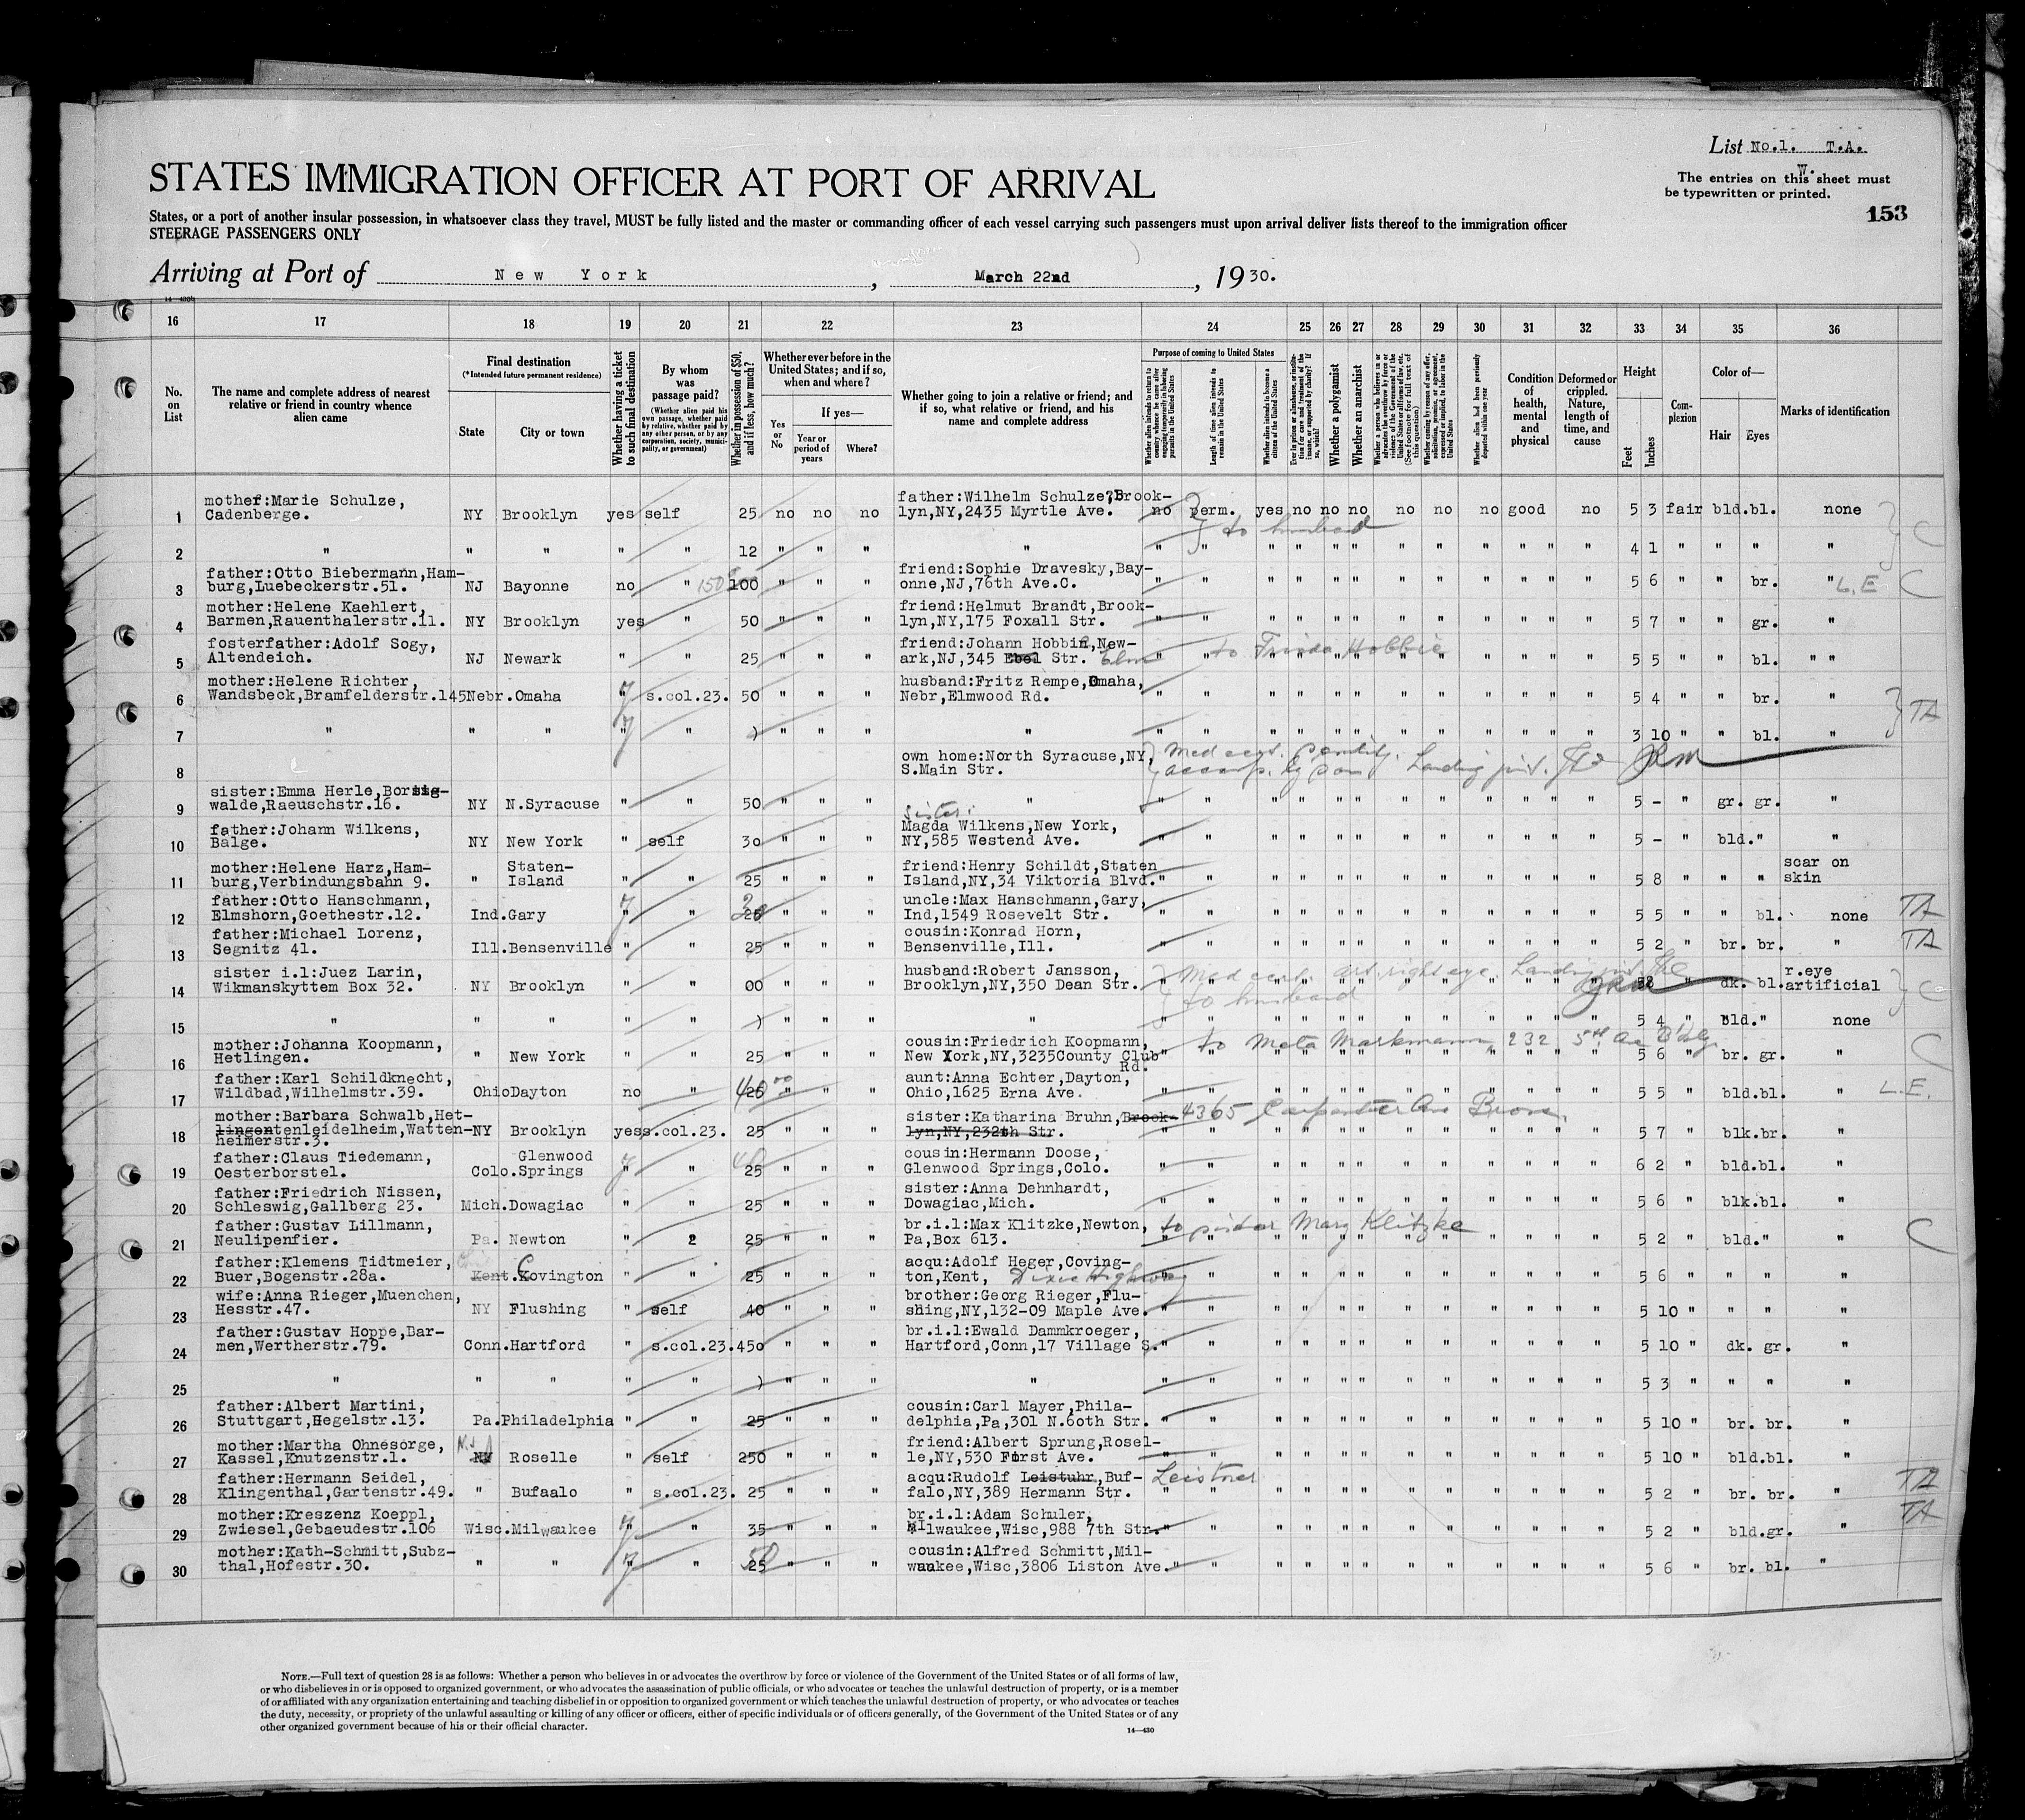 List No.1. T.A.
W.
The entries on this sheet must
be typewritten or printed.
153
STATES IMMIGRATION OFFICER AT PORT OF ARRIVAL
States, or a port of another insular possession, in whatsoever class they travel, MUST be fully listed and the master or commanding officer of each vessel carrying such passengers must upon arrival deliver lists thereof to the immigration officer
STEERAGE PASSENGERS ONLY
Arriving at Port of New York, March 22nd, 1930.
14—430b
16 17 18 19 20 21 22 23 24 25 26 27 28 29 30 31 32 33 34 35 36
No. on List
The name and complete address of nearest relative or friend in country whence alien came
Final destination
(*Intended future permanent residence)
State
City or town
Whether having a ticket to such final destination
By whom was passage paid?
(Whether alien paid his own passage, whether paid by relative, whether paid by any other person, or by any corporation, society, municipality, or government)
Whether in possession of $50, and if less, how much?
Whether ever before in the United States; and if so, when and where?
Yes or No
If yes—
Year or period of years
Where?
Whether going to join a relative or friend; and if so, what relative or friend, and his name and complete address
Purpose of coming to United States
Length of time alien intends to remain in the United States
Whether alien intends to become a citizen of the United States
Whether a polygamist
Whether an anarchist
Whether alien had been previously deported within one year
Condition of health, mental and physical
Deformed or crippled. Nature, length of time, and cause
Height
Feet
Inches
Complexion
Color of—
Hair
Eyes
Marks of identification
mother:Marie Schulze, father:Wilhelm Schulze,Brook-
1 Cadenberge. NY Brooklyn yes self 25 no no no lyn,NY,2435 Myrtle Ave. no perm. yes no no no no no no good no 5 3 fair bld.bl. none
to husband
2 " " " " " 12 " " " " " " " " " " " " " " " " 4 1 " " " " C
father:Otto Biebermann,Ham- friend:Sophie Dravesky,Bay-
3 burg,Luebeckerstr.51. NJ Bayonne no " 100 " " " onne,NJ,76th Ave.C. " " " " " " " " " " " " 5 6 " " br. " L.E C
mother:Helene Kaehlert, friend:Helmut Brandt,Brook-
4 Barmen,Rauenthalerstr.11. NY Brooklyn yes " 50 " " " lyn,NY,175 Foxall Str. " " " " " " " " " " " " 5 7 " " gr. "
fosterfather:Adolf Sogy, friend:Johann Hobbie,New-
5 Altendeich. NJ Newark " " 25 " " " ark,NJ,345 Ebel Str. Elm to Frieda Hobbie 5 5 " " bl. " "
mother:Helene Richter, husband:Fritz Rempe,Omaha,
6 Wandsbeck,Bramfelderstr.145 Nebr.Omaha " s.col.23. 50 " " " Nebr,Elmwood Rd. " " " " " " " " " " " " 5 4 " " br. " TA
7 " " " " " ) " " " " " " " " " " " " " " " " 3 10 " " bl. "
own home:North Syracuse,NY,
8 S.Main Str.
sister:Emma Herle,Borsig-
9 walde,Raeuschstr.16. NY N.Syracuse " " 50 " " " " " " " " " " " " " " " " 5 - " gr. gr. "
father:Johann Wilkens, sister: Magda Wilkens,New York,
10 Balge. NY New York " self 30 " " " NY,585 Westend Ave. " " " " " " " " " " " " 5 - " bld." "
mother:Helene Harz,Ham- Staten- friend:Henry Schildt,Staten scar on
11 burg,Verbindungsbahn 9. " Island " " 25 " " " Island,NY,34 Viktoria Blvd. " " " " " " " " " " " " 5 8 " " " skin
father:Otto Hanschmann, uncle:Max Hanschmann,Gary,
12 Elmshorn,Goethestr.12. Ind.Gary " " " " " Ind,1549 Rosevelt Str. " " " " " " " " " " " " 5 5 " " bl. none TA
father:Michael Lorenz, cousin:Konrad Horn,
13 Segnitz 41. Ill.Bensenville " " 25 " " " Bensenville,Ill. " " " " " " " " " " " " 5 2 " br. br. " TA
sister i.l:Juez Larin, husband:Robert Jansson, r.eye
14 Wikmanskyttem Box 32. NY Brooklyn " " 00 " " " Brooklyn,NY,350 Dean Str. Med cert. art. right eye. 58 " dk. bl. artificial C
to husband
15 " " " " " ) " " " " " " " " " " " " " " " " 5 4 " bld." none
mother:Johanna Koopmann, cousin:Friedrich Koopmann, to Meta Markmann 232 5th Ave
16 Hetlingen. " New York " " 25 " " " New York,NY,3235County Club Rd. 5 6 " br. gr. " C
father:Karl Schildknecht, aunt:Anna Echter,Dayton,
17 Wildbad,Wilhelmstr.39. Ohio Dayton no " " " " Ohio,1625 Erna Ave. " " " " " " " " " " " " 5 5 " bld.bl. " L.E.
mother:Barbara Schwalb,Het- sister:Katharina Bruhn,Brook- 4365 Carpenter Ave Bronx
18 lingentenleidelheim,Watten- NY Brooklyn yes s.col.23. 25 " " " lyn,NY,232th Str. " " " " " " " " " " " " 5 7 " blk.br. "
heimerstr.3.
father:Claus Tiedemann, Glenwood cousin:Hermann Doose,
19 Oesterborstel. Colo.Springs " " 25 " " " Glenwood Springs,Colo. " " " " " " " " " " " " 6 2 " bld.bl. "
father:Friedrich Nissen, sister:Anna Dehnhardt,
20 Schleswig,Gallberg 23. Mich.Dowagiac " " 25 " " " Dowagiac,Mich. " " " " " " " " " " " " 5 6 " blk.bl. "
father:Gustav Lillmann, br.i.l:Max Klitzke,Newton, to sister Mary Klitzke
21 Neulipenfier. Pa. Newton " 2 25 " " " Pa,Box 613. " " " " " " " " " " " " 5 2 " bld." " C
father:Klemens Tidtmeier, acqu:Adolf Heger,Coving-
22 Buer,Bogenstr.28a. Kent.Covington " " 25 " " " ton,Kent, Dixie Highway " " " " " " " " " " " " 5 6 " " " "
wife:Anna Rieger,Muenchen, brother:Georg Rieger,Flu-
23 Hesstr.47. NY Flushing " self 40 " " " shing,NY,132-09 Maple Ave. " " " " " " " " " " " " 5 10 " " " "
father:Gustav Hoppe,Bar- br.i.l:Ewald Dammkroeger,
24 men,Wertherstr.79. Conn.Hartford " s.col.23.450 " " " Hartford,Conn,17 Village S. " " " " " " " " " " " " 5 10 " dk. gr. "
25 " " " " " ) " " " " " " " " " " " " " " " " 5 3 " " " "
father:Albert Martini, cousin:Carl Mayer,Phila-
26 Stuttgart,Hegelstr.13. Pa.Philadelphia " " 25 " " " delphia,Pa,301 N.60th Str. " " " " " " " " " " " " 5 10 " br. br. "
mother:Martha Ohnesorge, N.J friend:Albert Sprung,Rosel-
27 Kassel,Knutzenstr.1. NY Roselle " self 250 " " " le,NY,530 First Ave. " " " " " " " " " " " " 5 10 " bld.bl. "
father:Hermann Seidel, acqu:Rudolf Leistuhr,Buf- Leistner
28 Klingenthal,Gartenstr.49. " Bufaalo " s.col.23. 25 " " " falo,NY,389 Hermann Str. " " " " " " " " " " " " 5 2 " br. br. " TA
mother:Kreszenz Koeppl, br.i.l:Adam Schuler,
29 Zwiesel,Gebaeudestr.106 Wisc.Milwaukee " " 35 " " " Milwaukee,Wisc,988 7th Str. " " " " " " " " " " " " 5 2 " bld.gr. " TA
mother:Kath-Schmitt,Subz- cousin:Alfred Schmitt,Mil-
30 thal,Hofestr.30. " " " " 25 " " " waukee,Wisc,3806 Liston Ave. " " " " " " " " " " " " 5 6 " br. bl. "
NOTE.—Full text of question 28 is as follows: Whether a person who believes in or advocates the overthrow by force or violence of the Government of the United States or of all forms of law,
or who disbelieves in or is opposed to organized government, or who advocates the assassination of public officials, or who advocates or teaches the unlawful destruction of property, or is a member
of or affiliated with any organization entertaining and teaching disbelief in or opposition to organized government or which teaches the unlawful destruction of property, or who advocates or teaches
the duty, necessity, or propriety of the unlawful assaulting or killing of any officer or officers, either of specific individuals or of officers generally, of the Government of the United States or of any
other organized government because of his or their official character.
14—430